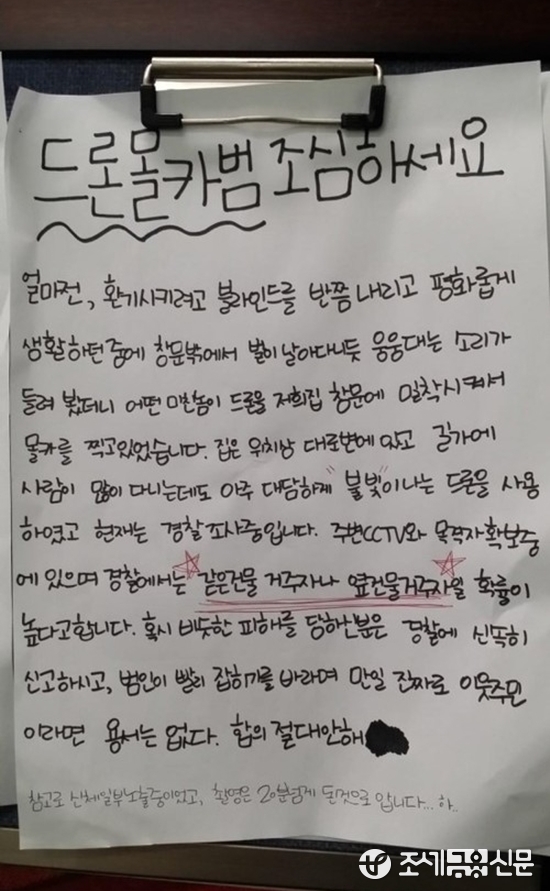 드론몰카범 조심하세요
얼마전, 환기시키려고 블라인드를 반쯤내리고 평화롭게
생활하던중에 창문밖에서 벌이날아다니듯 웅웅대는 소리가
들려 봤더니 어떤 미친놈이 드론을 저희집 창문에 밀착시켜서
몰카를 찍고있었습니다. 집은 위치상 대로변에 있고 길가에
사람이 많이 다니는데도 아주 대담하게 "불빛"이나는 드론을 사용
하였고 현재는 경찰조사중입니다. 주변CCTV와 목격자확보중
에 있으며 경찰에서는 같은건물 거주자나 옆건물거주자일 확률이
높다고합니다. 혹시 비슷한 피해를 당하신분은 경찰에 신뜩히
신고하시고, 범인이 빨리 잡히기를 바라며 만일 진짜로 이웃주민
이라면 용서는 없다. 합의 절대안해
참고로 신체일부노출중이었고, 촬영은 20분넘게 된것으로 압니다... 하..
조세금융신문